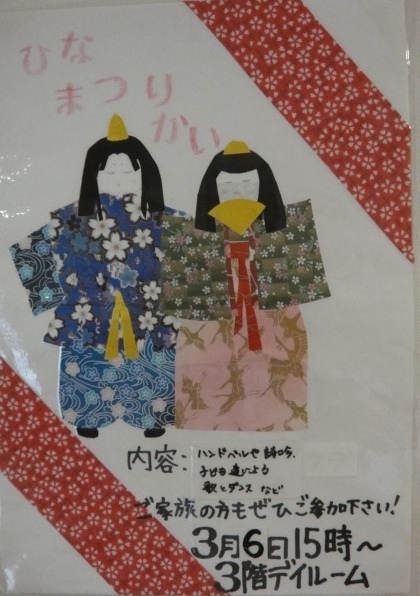 ひな
まつり
かい
内容:
ハンドベルや 詩吟、
子ども達による
歌とダンス など
ご家族の方もぜひご参加下さい!
3月6日15時〜
3階デイルーム